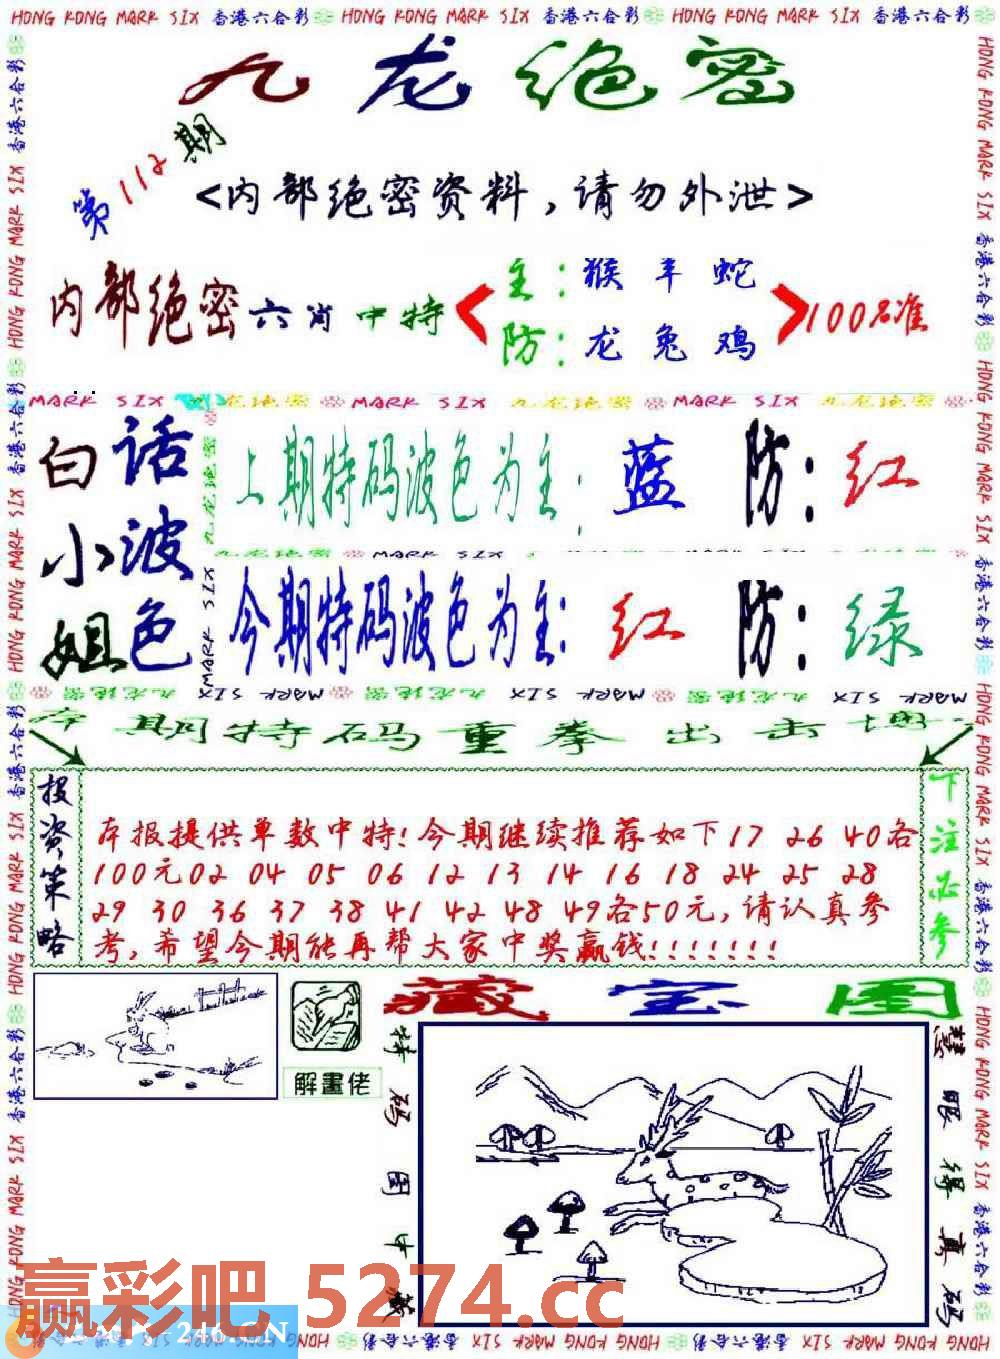 HONG KONG MARK SIX 香港六合彩 HONG KONG MARK SIX 香港六合彩 HONG KONG MARK SIX 香港六合彩
九龙绝密
第112期
<内部绝密资料,请勿外泄>
内部绝密六肖中特
主:猴羊蛇
防:龙兔鸡
100%准
MARK SIX 九龙绝密 MARK SIX 九龙绝密 MARK SIX 九龙绝密
白小姐
话波色
上期特码波色为主:蓝 防:红
九龙绝密 MARK SIX
今期特码波色为主:红 防:绿
本期特码重拳出击
投资策略
本报提供单数中特!今期继续推荐如下17 26 40各
100元02 04 05 06 12 13 14 16 18 24 25 28
29 30 36 37 38 41 42 48 49各50元,请认真参
考,希望今期能再帮大家中奖赢钱!!!!!!!
下注必参
解畫佬
藏宝图
特码图中藏
慧眼得真码
赢彩吧 5274.cc
246T.CN